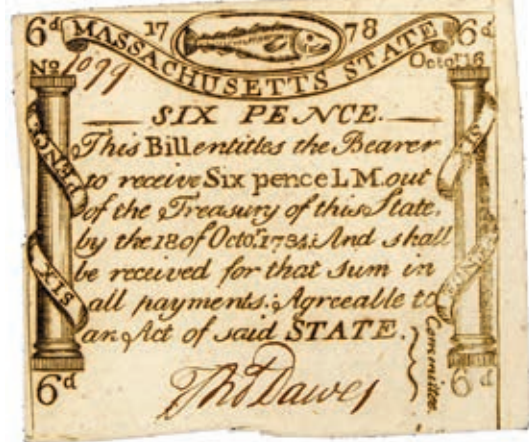 6d 17 78 6d
MASSACHUSETTS STATE
No 1099 Octor. 18
SIX PENCE.
This Bill entitles the Bearer
to receive Six pence LM. out
of the Treasury of this State,
by the 18 of Octor. 1784; And shall
be received for that sum in
all payments: Agreeable to
an Act of said STATE.
SIX PENCE
SIX PENCE
Committee.
6d 6d
Tho Dawes